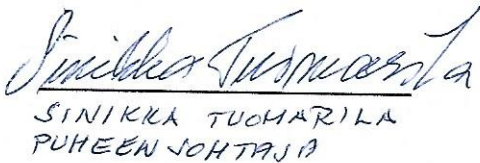 Sinikka Tuomarila
SINIKKA TUOMARILA
PUHEENJOHTAJA